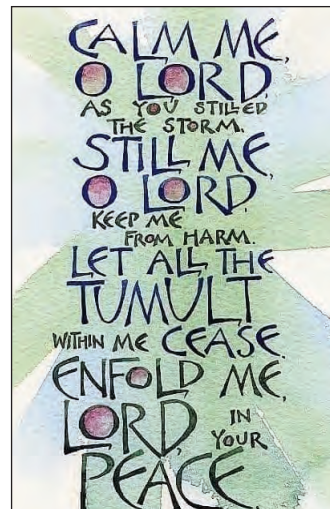 CALM ME,
O LORD,
AS YOU STILLED
THE STORM.
STILL ME,
O LORD,
KEEP ME
FROM HARM.
LET ALL THE
TUMULT
WITHIN ME CEASE.
ENFOLD ME,
LORD, IN
YOUR
PEACE.